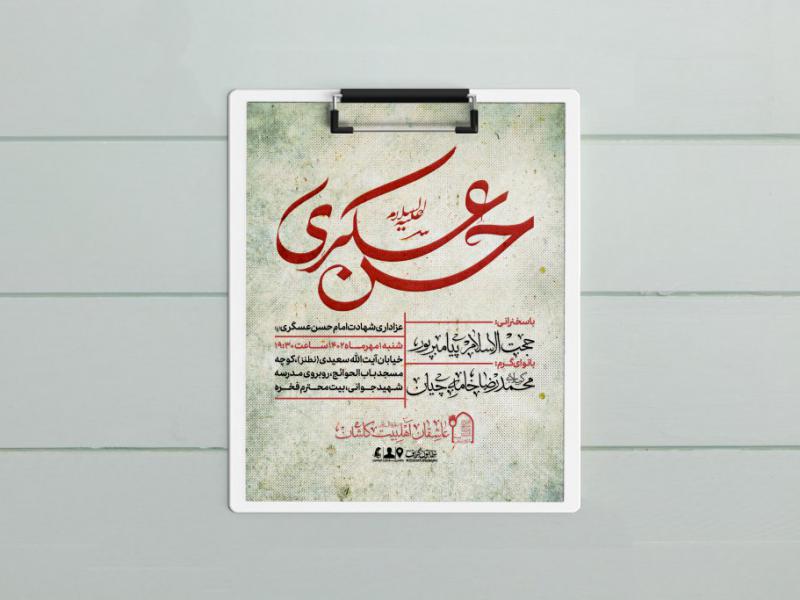 حسن عسکری
علیه السلام
باسخنرانی:
حجت الاسلام پیامبرپور
بانوای گرم:
محمدرضا خامه‌چیان
عزاداری شهادت امام حسن عسگری
شنبه ۱ مهر ماه ۱۴۰۲ ساعت ۱۹:۳۰
خیابان آیت الله سعیدی (نطنز)، کوچه
مسجد باب الحوائج، روبروی مدرسه
شهید جوانی، بیت محترم فخره
عاشقان اهل بیت کاشان